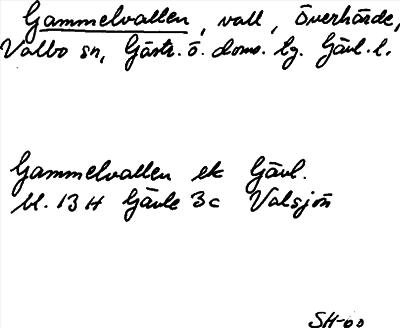 Gammelvallen, vall, Överhärde,
Valbo sn, Gästr. ö. doms. lg. Gävl. l.
Gammelvallen ek Gävl.
bl. 13 H Gävle 3c Valsjön
SH-00